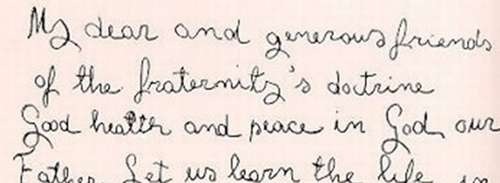 My dear and generous friends
of the fraternity's doctrine
Good healtth and peace in God, our
Father. Let us learn the life in